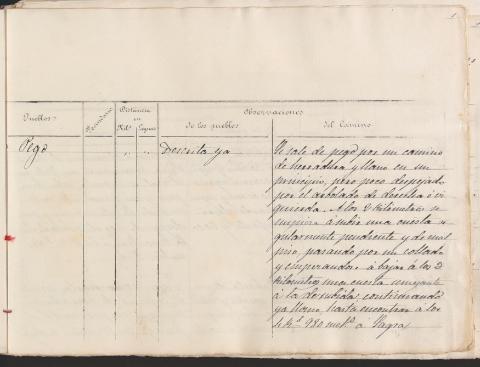 1
Observaciones
Distancia
en
Pueblos
Kil.s
Leguas
de los pueblos
del Camino
Pego
" "
Descrita ya
Se sale de pego por un camino
de herradura y llano en un
principio, pero poco despejado
por el arbolado de derecha é iz
quierda. A los 2 Kilómetros se
empieza á subir una cuesta re
gularmente pendiente y de mal
piso, pasando por un collado
y empezando á bajar á los 3
Kilómetros una cuesta semejante
á la de subida, continuando
ya llano, hasta encontrar a los
4 K.s 980 met.s á Sagra